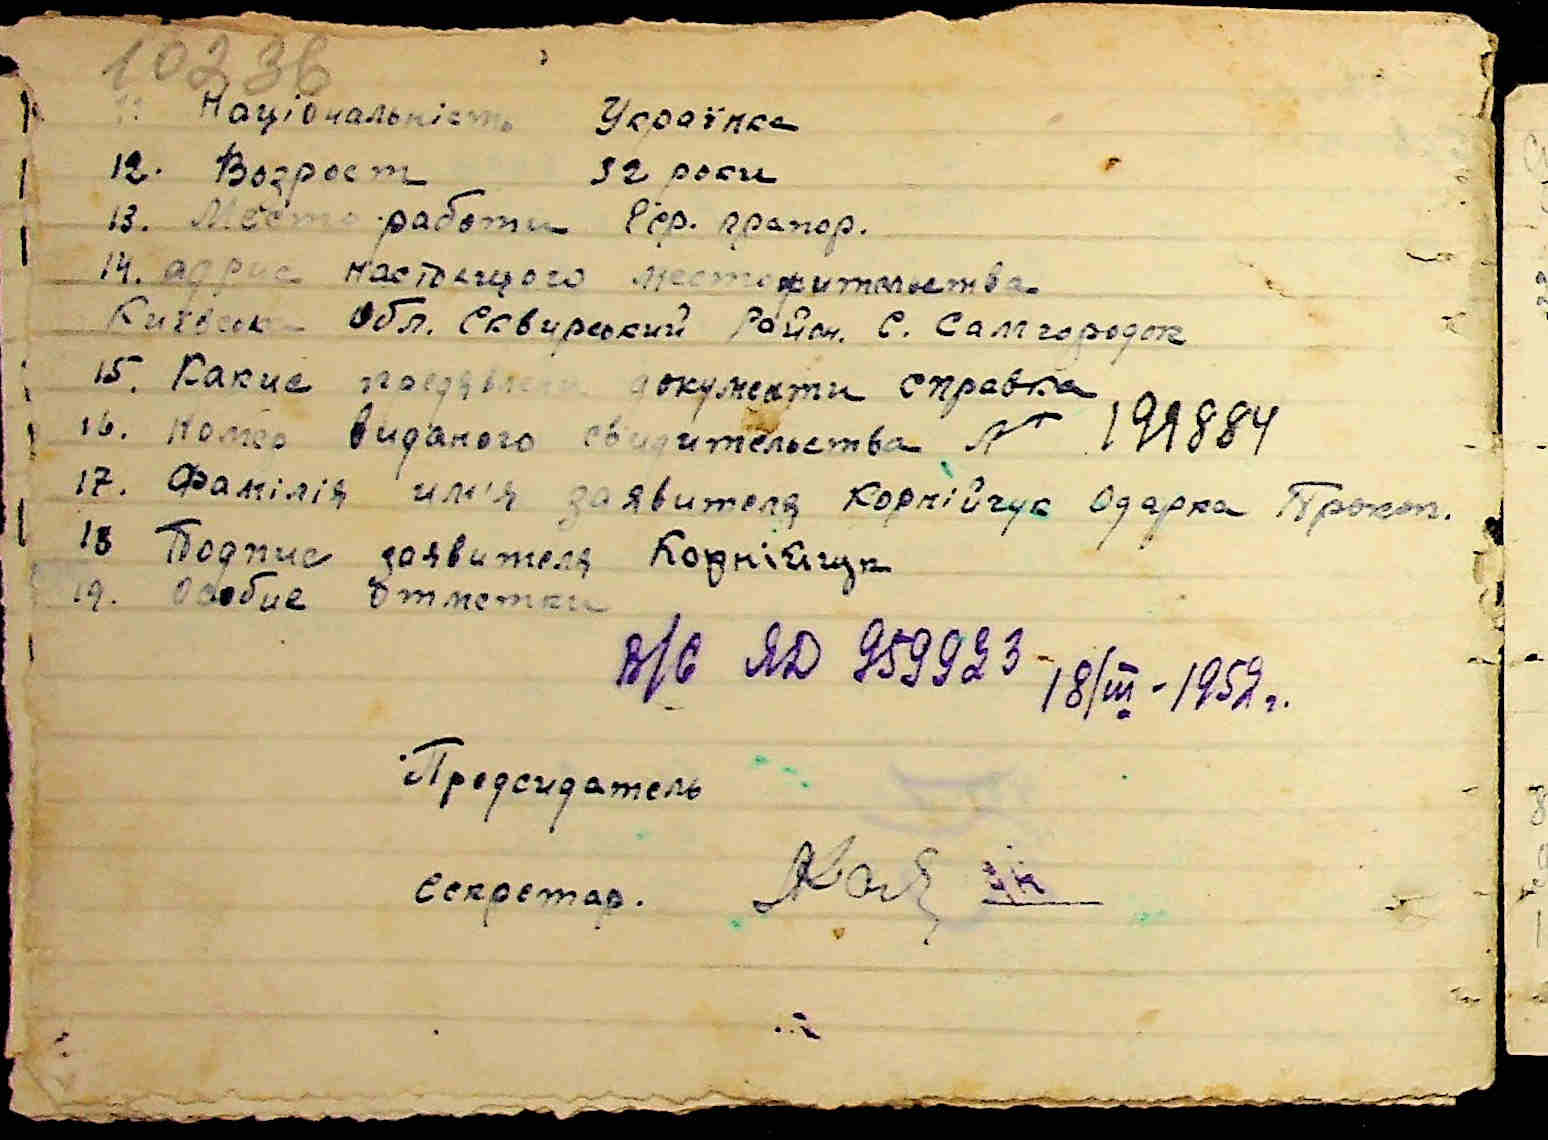 10236
11 Національність Українка
12. Возрост 32 роки
13. Место работи Гер. прапор.
14. адрис настоящого местожительства
Київська Обл. Сквирський Район. С. Самгородок
15. Какие предявлени документи справка
16. Номер виданого свидительства № 191884
17. Фамілія им'я заявителя Корнійчук Одарка Прокоп.
18 Подпис заявителя Корнійчук
19. особие отметки
В/С ЯД 959923 18/III-1952 г.
Предсидатель
Секретар.